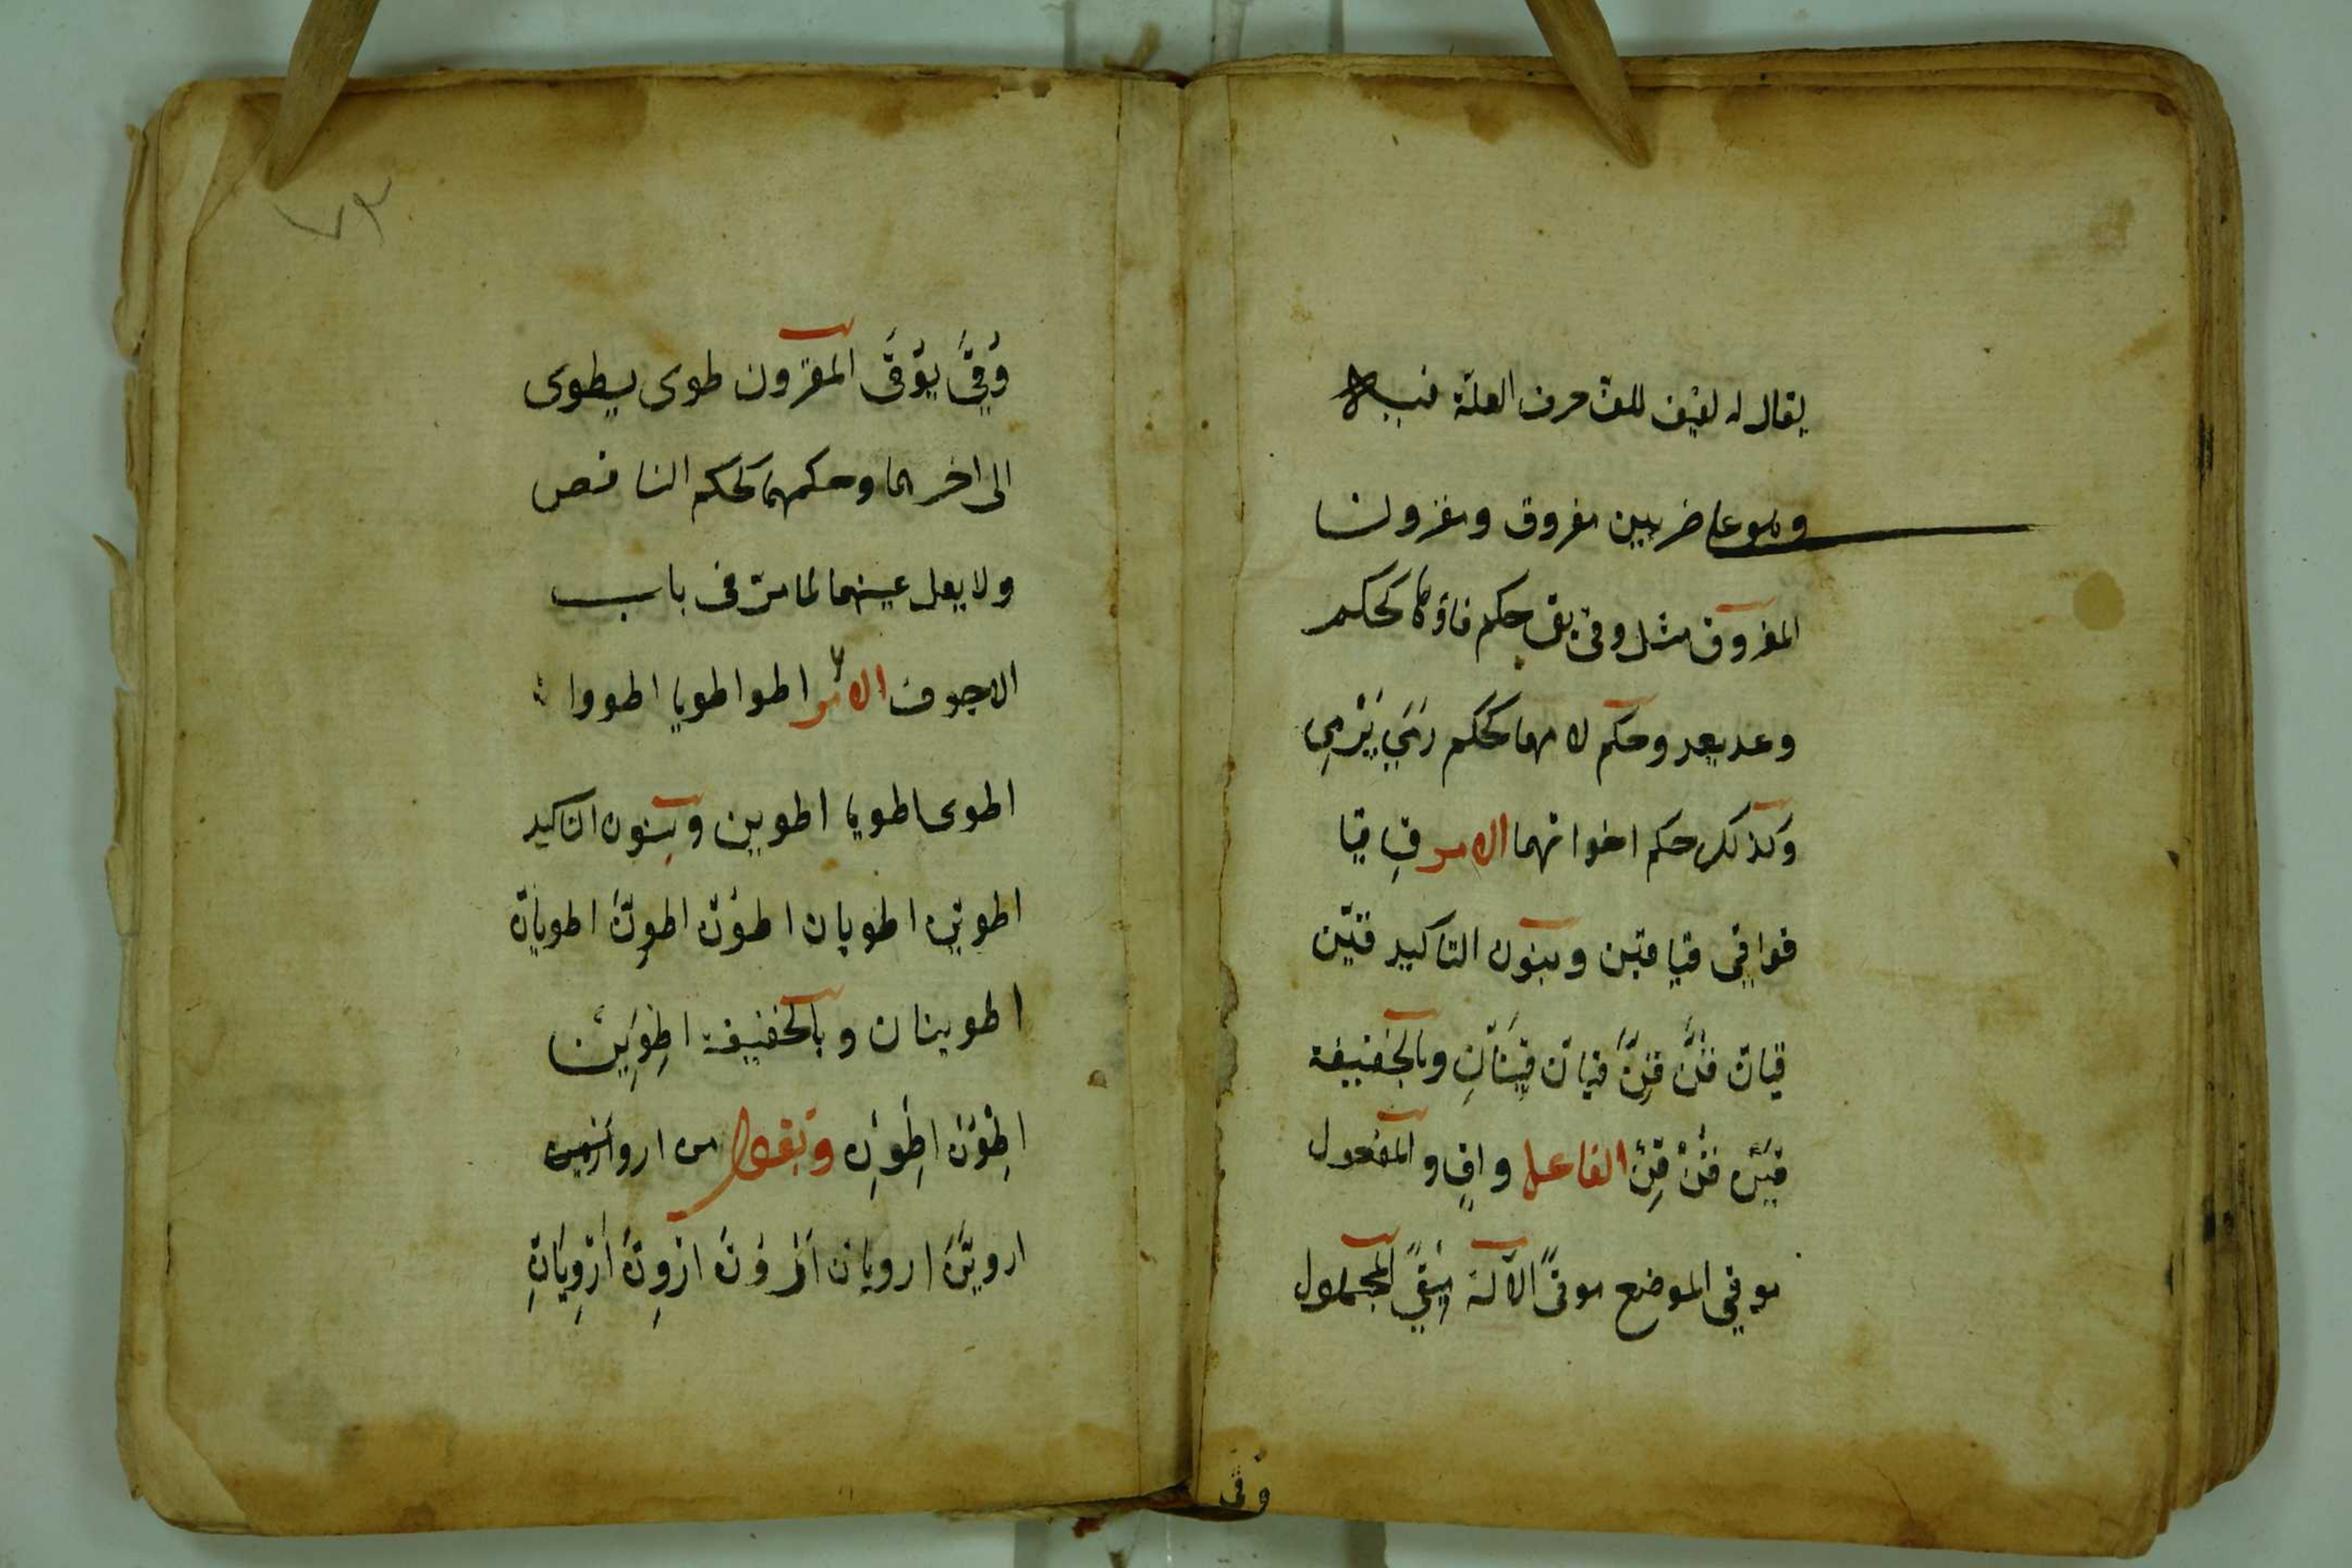 يقال له لفيف للف حرف العلة فيه
وهو على ضربين مفروق ومقرون
المفروق مثل وقى يقى حكم فاؤهما كحكم
وعد يعد وحكم لامهما كحكم رَمَيَ يَرْمِي
وكذلك حكم اخواتهما الامر قِ قيا
قوا قى قيا قين وبنون التاكيد قيَنّ
قيانّ قُنَّ قِنَّ قيانّ قينَانِّ وبالخفيفة
قيَنْ قُنْ قِنْ الفاعل واقٍ والمفعول
موقي الموضع موقىً الآلة مِيْقىً المجهول
وُقى
وُقِيَ يُوْقَى المقرون طوى يطوى
الى اخرهما وحكمهما كحكم الناقص
ولا يعل عينهما لما مرّ فى باب
الاجوف الامر اطو اطويا اطووا
اطوى اطويا اطوين وبنون التاكيد
اطوينّ اطويان اطوُنّ اطوِنَّ اطويانّ
اطوينان وبالخفيفة اِطْوِيَنْ
اِطْوُنْ اِطْوِنْ وتقول من ارو
ارويَنَّ ارويان اَرْوُنَّ ارْوِنَّ اَرْوِيَانِّ
٧٣